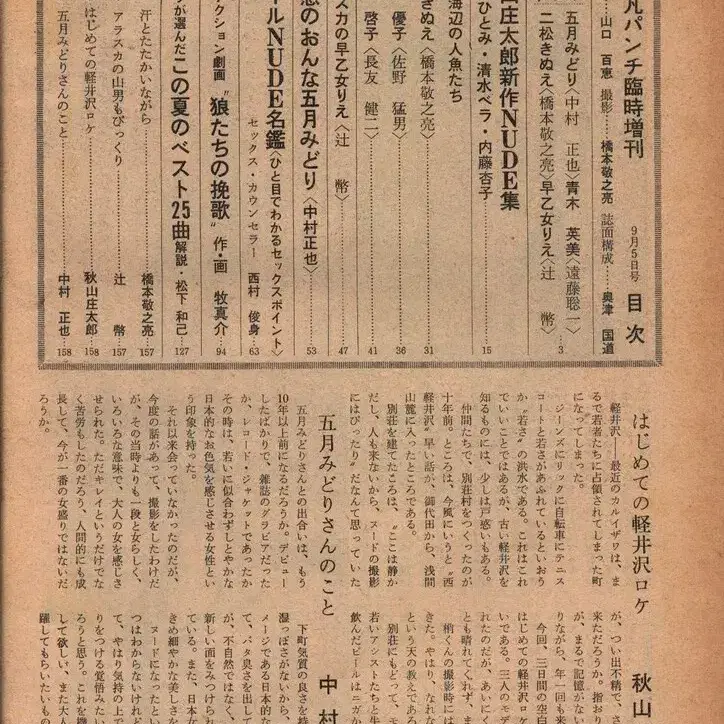 凡パンチ臨時増刊 9月5日号 目次
山口 百恵 撮影……橋本敬之亮 誌面構成……奥津 国道
五月みどり〈中村 正也〉青木 英美〈遠藤聡一〉
二松きぬえ〈橋本敬之亮〉早乙女りえ〈辻 幣〉……3
山庄太郎新作NUDE集
ひとみ・清水ベラ・内藤杏子……15
海辺の人魚たち
きぬえ〈橋本敬之亮〉……31
優子〈佐野 猛男〉……36
啓子〈長友 健二〉……41
スカの早乙女りえ〈辻 幣〉……47
のおんな五月みどり〈中村正也〉……53
ルNUDE名鑑〈ひと目でわかるセックスポイント〉
セックス・カウンセラー 西村 俊身……63
クション劇画 〝狼たちの挽歌〟 作・画 牧真介……94
が選んだこの夏のベスト25曲 解説・松下 和己……127
汗とたたかいながら……橋本敬之亮……157
アラスカの山男もびっくり……辻 幣……157
はじめての軽井沢ロケ……秋山庄太郎……158
五月みどりさんのこと……中村 正也……158
はじめての軽井沢ロケ 秋山
軽井沢――最近のカルイザワは、ま
るで若者たちに占領されてしまった町
になってしまった。
ジーンズにリックに自転車にテニス
コートと若さがあふれているというお
か〝若さ〟の洪水である。これはこれ
でいいことではあるが、古い軽井沢を
知るものには、少しは戸惑いもある。
仲間たちで、別荘村をつくったのが
十年前。ところは、今風にいうと〝西
軽井沢〟早い話が、御代田から、浅間
山麓に入ったところである。
別荘を建てたころは、〝ここは静か
だし、人も来ないから、ヌードの撮影
にはぴったり〟だなんて思っていた
が、つい出不精で、さ
来ただろうか。指お
が、まるで記憶がない
りながら、年一回も来
今回、三日間の空
はじめての軽井沢ロケ
いである。三人のモデ
れたのだが、あいにく
とも晴れてくれず、ま
稍くんの撮影時には
きた。やはり、なれな
という天の教えである
別荘にもどって、モ
若いアシストたちと生
飲んだビールはニガか
五月みどりさんのこと 中村
五月みどりさんとの出合いは、もう
10年以上前になるだろうか。デビュー
したばかりで、雑誌のグラビアだった
か、レコード・ジャケットであったか
その時は、若いに似合わずしとやかな
日本的なお色気を感じさせる女性とい
う印象を持った。
それ以来会っていなかったのだが、
今度の話があって、撮影をしたわけだ
が、その当時よりも一段と女らしく、
いろいろな意味で、大人の女を感じさ
せられた。ただキレイというだけでな
く苦労もしたのだろう、人間的にも成
長して、今が一番の女盛りではないだ
ろうか。
下町気質の良さを持
湿っぽさがないから、
メージである日本的な
て、バタ臭さを出して
が、不自然ではなく、
新しい面をみつけられ
ている。また、日本女
きめ細やかな美しさを
ヌードになったとい
つはわからないけれど
て、やはり気持の上で
りをつける覚悟みたい
ろうと思う。これを機
して欲しい、また大人
躍してもらいたいもの